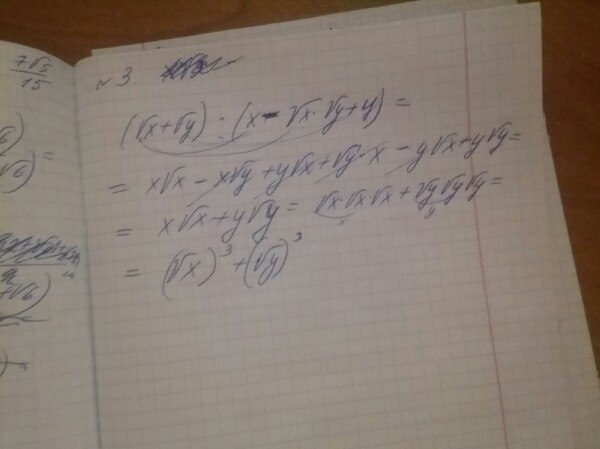 7√5
15
√6)
√6) =
+√6)
№3.
(√x+√y) · (x - √x·√y + y) =
= x√x - x√y + y√x + √y·x - y√x + y√y =
= x√x + y√y = √x·√x√x + √y√y√y =
x y
= (√x)³ + (√y)³